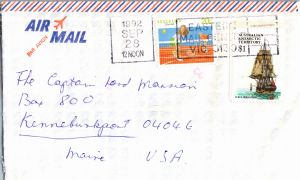 AIR MAIL
PAR AVION
1992
SEP
28
12 NOON
EASTERN
MAIL CENTRE
VIC 3130 81
AUSTRALIAN
ANTARCTIC
TERRITORY
The Captain Lord Mansion
Box 800
Kennebunkport 04046
Maine U.S.A.